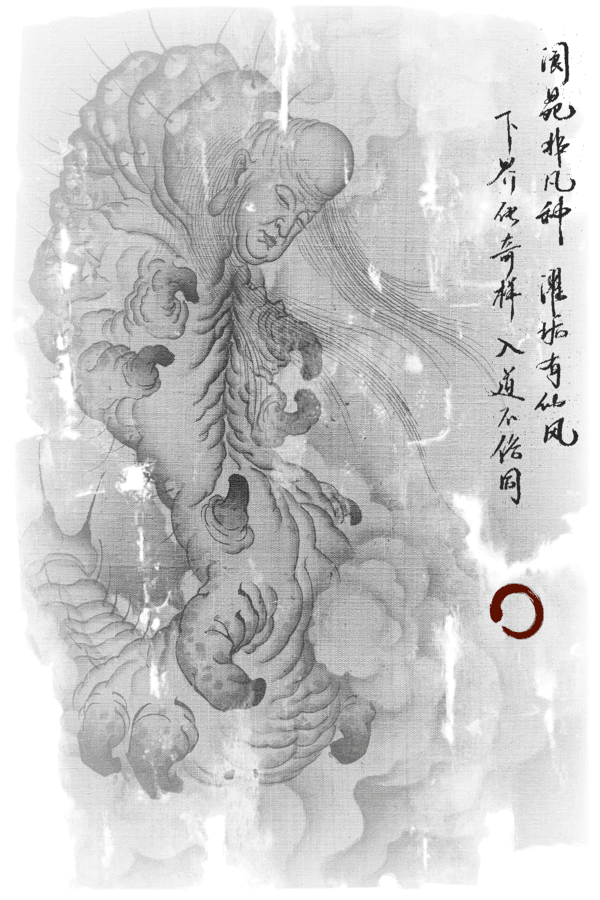 阆昆非凡种 濯垢有仙风
下界化奇样 入道不俗同